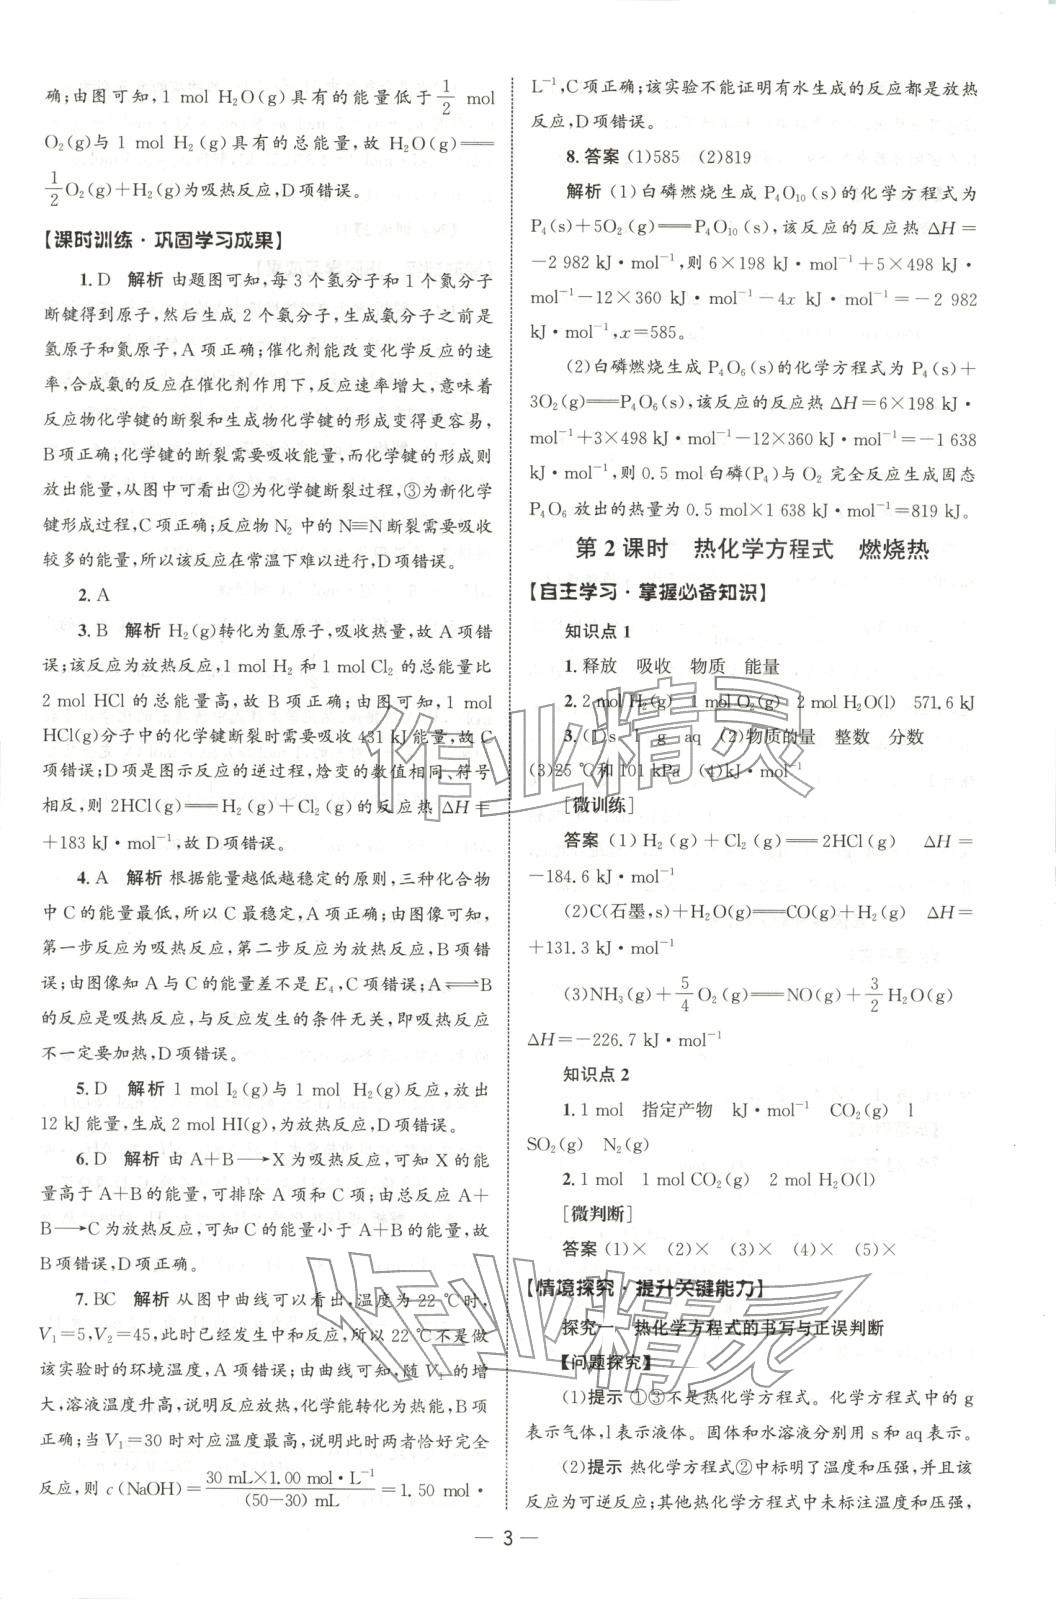 确;由图可知,1 mol H₂O(g)具有的能量低于1/2 mol
O₂(g)与 1 mol H₂(g)具有的总能量,故 H₂O(g)══
1/2O₂(g)+H₂(g)为吸热反应,D项错误。
【课时训练·巩固学习成果】
1. D 解析 由题图可知,每 3 个氢分子和 1 个氮分子
断键得到原子,然后生成 2 个氨分子,生成氨分子之前是
氢原子和氮原子,A 项正确;催化剂能改变化学反应的速
率,合成氨的反应在催化剂作用下,反应速率增大,意味着
反应物化学键的断裂和生成物化学键的形成变得更容易,
B项正确;化学键的断裂需要吸收能量,而化学键的形成则
放出能量,从图中可看出②为化学键断裂过程,③为新化学
键形成过程,C项正确;反应物 N₂ 中的 N≡N断裂需要吸收
较多的能量,所以该反应在常温下难以进行,D项错误。
2. A
3. B 解析 H₂(g)转化为氢原子,吸收热量,故 A 项错
误;该反应为放热反应,1 mol H₂ 和 1 mol Cl₂ 的总能量比
2 mol HCl 的总能量高,故 B 项正确;由图可知,1 mol
HCl(g)分子中的化学键断裂时需要吸收 431 kJ 能量,故 C
项错误;D项是图示反应的逆过程,焓变的数值相同、符号
相反,则 2HCl(g)══H₂(g)+Cl₂(g)的反应热 ΔH=
+183 kJ·mol⁻¹,故 D项错误。
4. A 解析 根据能量越低越稳定的原则,三种化合物
中C的能量最低,所以 C 最稳定,A项正确;由图像可知,
第一步反应为吸热反应,第二步反应为放热反应,B项错
误;由图像知 A 与 C 的能量差不是 E₄,C 项错误;A⇌B
的反应是吸热反应,与反应发生的条件无关,即吸热反应
不一定要加热,D项错误。
5. D 解析 1 mol I₂(g)与 1 mol H₂(g)反应,放出
12 kJ能量,生成 2 mol HI(g),为放热反应,D项错误。
6. D 解析 由 A+B⟶X为吸热反应,可知 X的能
量高于 A+B的能量,可排除 A 项和 C 项;由总反应 A+
B⟶C为放热反应,可知 C 的能量小于 A+B的能量,故
B项错误,D项正确。
7. BC 解析 从图中曲线可以看出,温度为 22 ℃时,
V₁=5,V₂=45,此时已经发生中和反应,所以 22 ℃不是做
该实验时的环境温度,A 项错误;由曲线可知,随 V₁ 的增
大,溶液温度升高,说明反应放热,化学能转化为热能,B项
正确;当 V₁=30 时对应温度最高,说明此时两者恰好完全
反应,则 c(NaOH)=30 mL×1.00 mol·L⁻¹/(50−30) mL=1.50 mol·
L⁻¹,C 项正确;该实验不能证明有水生成的反应都是放热
反应,D项错误。
8. 答案 (1)585 (2)819
解析 (1)白磷燃烧生成 P₄O₁₀(s)的化学方程式为
P₄(s)+5O₂(g)══P₄O₁₀(s),该反应的反应热 ΔH=
−2 982 kJ·mol⁻¹,则 6×198 kJ·mol⁻¹+5×498 kJ·
mol⁻¹−12×360 kJ·mol⁻¹−4x kJ·mol⁻¹=−2 982
kJ·mol⁻¹,x=585。
(2)白磷燃烧生成 P₄O₆(s)的化学方程式为 P₄(s)+
3O₂(g)══P₄O₆(s),该反应的反应热 ΔH=6×198 kJ·
mol⁻¹+3×498 kJ·mol⁻¹−12×360 kJ·mol⁻¹=−1 638
kJ·mol⁻¹,则 0.5 mol白磷(P₄)与 O₂ 完全反应生成固态
P₄O₆ 放出的热量为 0.5 mol×1 638 kJ·mol⁻¹=819 kJ。
第 2 课时 热化学方程式 燃烧热
【自主学习·掌握必备知识】
知识点 1
1. 释放 吸收 物质 能量
2. 2 mol H₂(g) 1 mol O₂(g) 2 mol H₂O(l) 571.6 kJ
3. (1)s l g aq (2)物质的量 整数 分数
(3)25 ℃和 101 kPa (4)kJ·mol⁻¹
[微训练]
答案 (1)H₂(g)+Cl₂(g)══2HCl(g) ΔH=
−184.6 kJ·mol⁻¹
(2)C(石墨,s)+H₂O(g)══CO(g)+H₂(g) ΔH=
+131.3 kJ·mol⁻¹
(3)NH₃(g)+5/4O₂(g)══NO(g)+3/2H₂O(g)
ΔH=−226.7 kJ·mol⁻¹
知识点 2
1. 1 mol 指定产物 kJ·mol⁻¹ CO₂(g) l
SO₂(g) N₂(g)
2. 1 mol 1 mol CO₂(g) 2 mol H₂O(l)
[微判断]
答案 (1)× (2)× (3)× (4)× (5)×
【情境探究·提升关键能力】
探究一 热化学方程式的书写与正误判断
【问题探究】
(1)提示 ①③不是热化学方程式。化学方程式中的 g
表示气体,l表示液体。固体和水溶液分别用 s和 aq表示。
(2)提示 热化学方程式②中标明了温度和压强,并且该
反应为可逆反应;其他热化学方程式中未标注温度和压强,
— 3 —
作业精灵
作业精灵